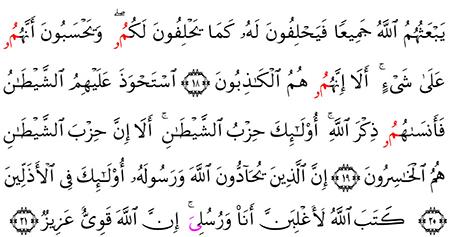 يَبْعَثُهُمُ ٱللَّهُ جَمِيعًا فَيَحْلِفُونَ لَهُۥ كَمَا يَحْلِفُونَ لَكُمُۥ ۖ وَيَحْسَبُونَ أَنَّهُمُۥ
عَلَىٰ شَىْءٍ ۚ أَلَآ إِنَّهُمُۥ هُمُ ٱلْكَـٰذِبُونَ ﴿١٨﴾ ٱسْتَحْوَذَ عَلَيْهِمُ ٱلشَّيْطَـٰنُ
فَأَنسَىٰهُمُۥ ذِكْرَ ٱللَّهِ ۚ أُو۟لَـٰٓئِكَ حِزْبُ ٱلشَّيْطَـٰنِ ۚ أَلَآ إِنَّ حِزْبَ ٱلشَّيْطَـٰنِ
هُمُ ٱلْخَـٰسِرُونَ ﴿١٩﴾ إِنَّ ٱلَّذِينَ يُحَآدُّونَ ٱللَّهَ وَرَسُولَهُۥٓ أُو۟لَـٰٓئِكَ فِى ٱلْأَذَلِّينَ
﴿٢٠﴾ كَتَبَ ٱللَّهُ لَأَغْلِبَنَّ أَنَا۠ وَرُسُلِىَ ۚ إِنَّ ٱللَّهَ قَوِىٌّ عَزِيزٌ ﴿٢١﴾